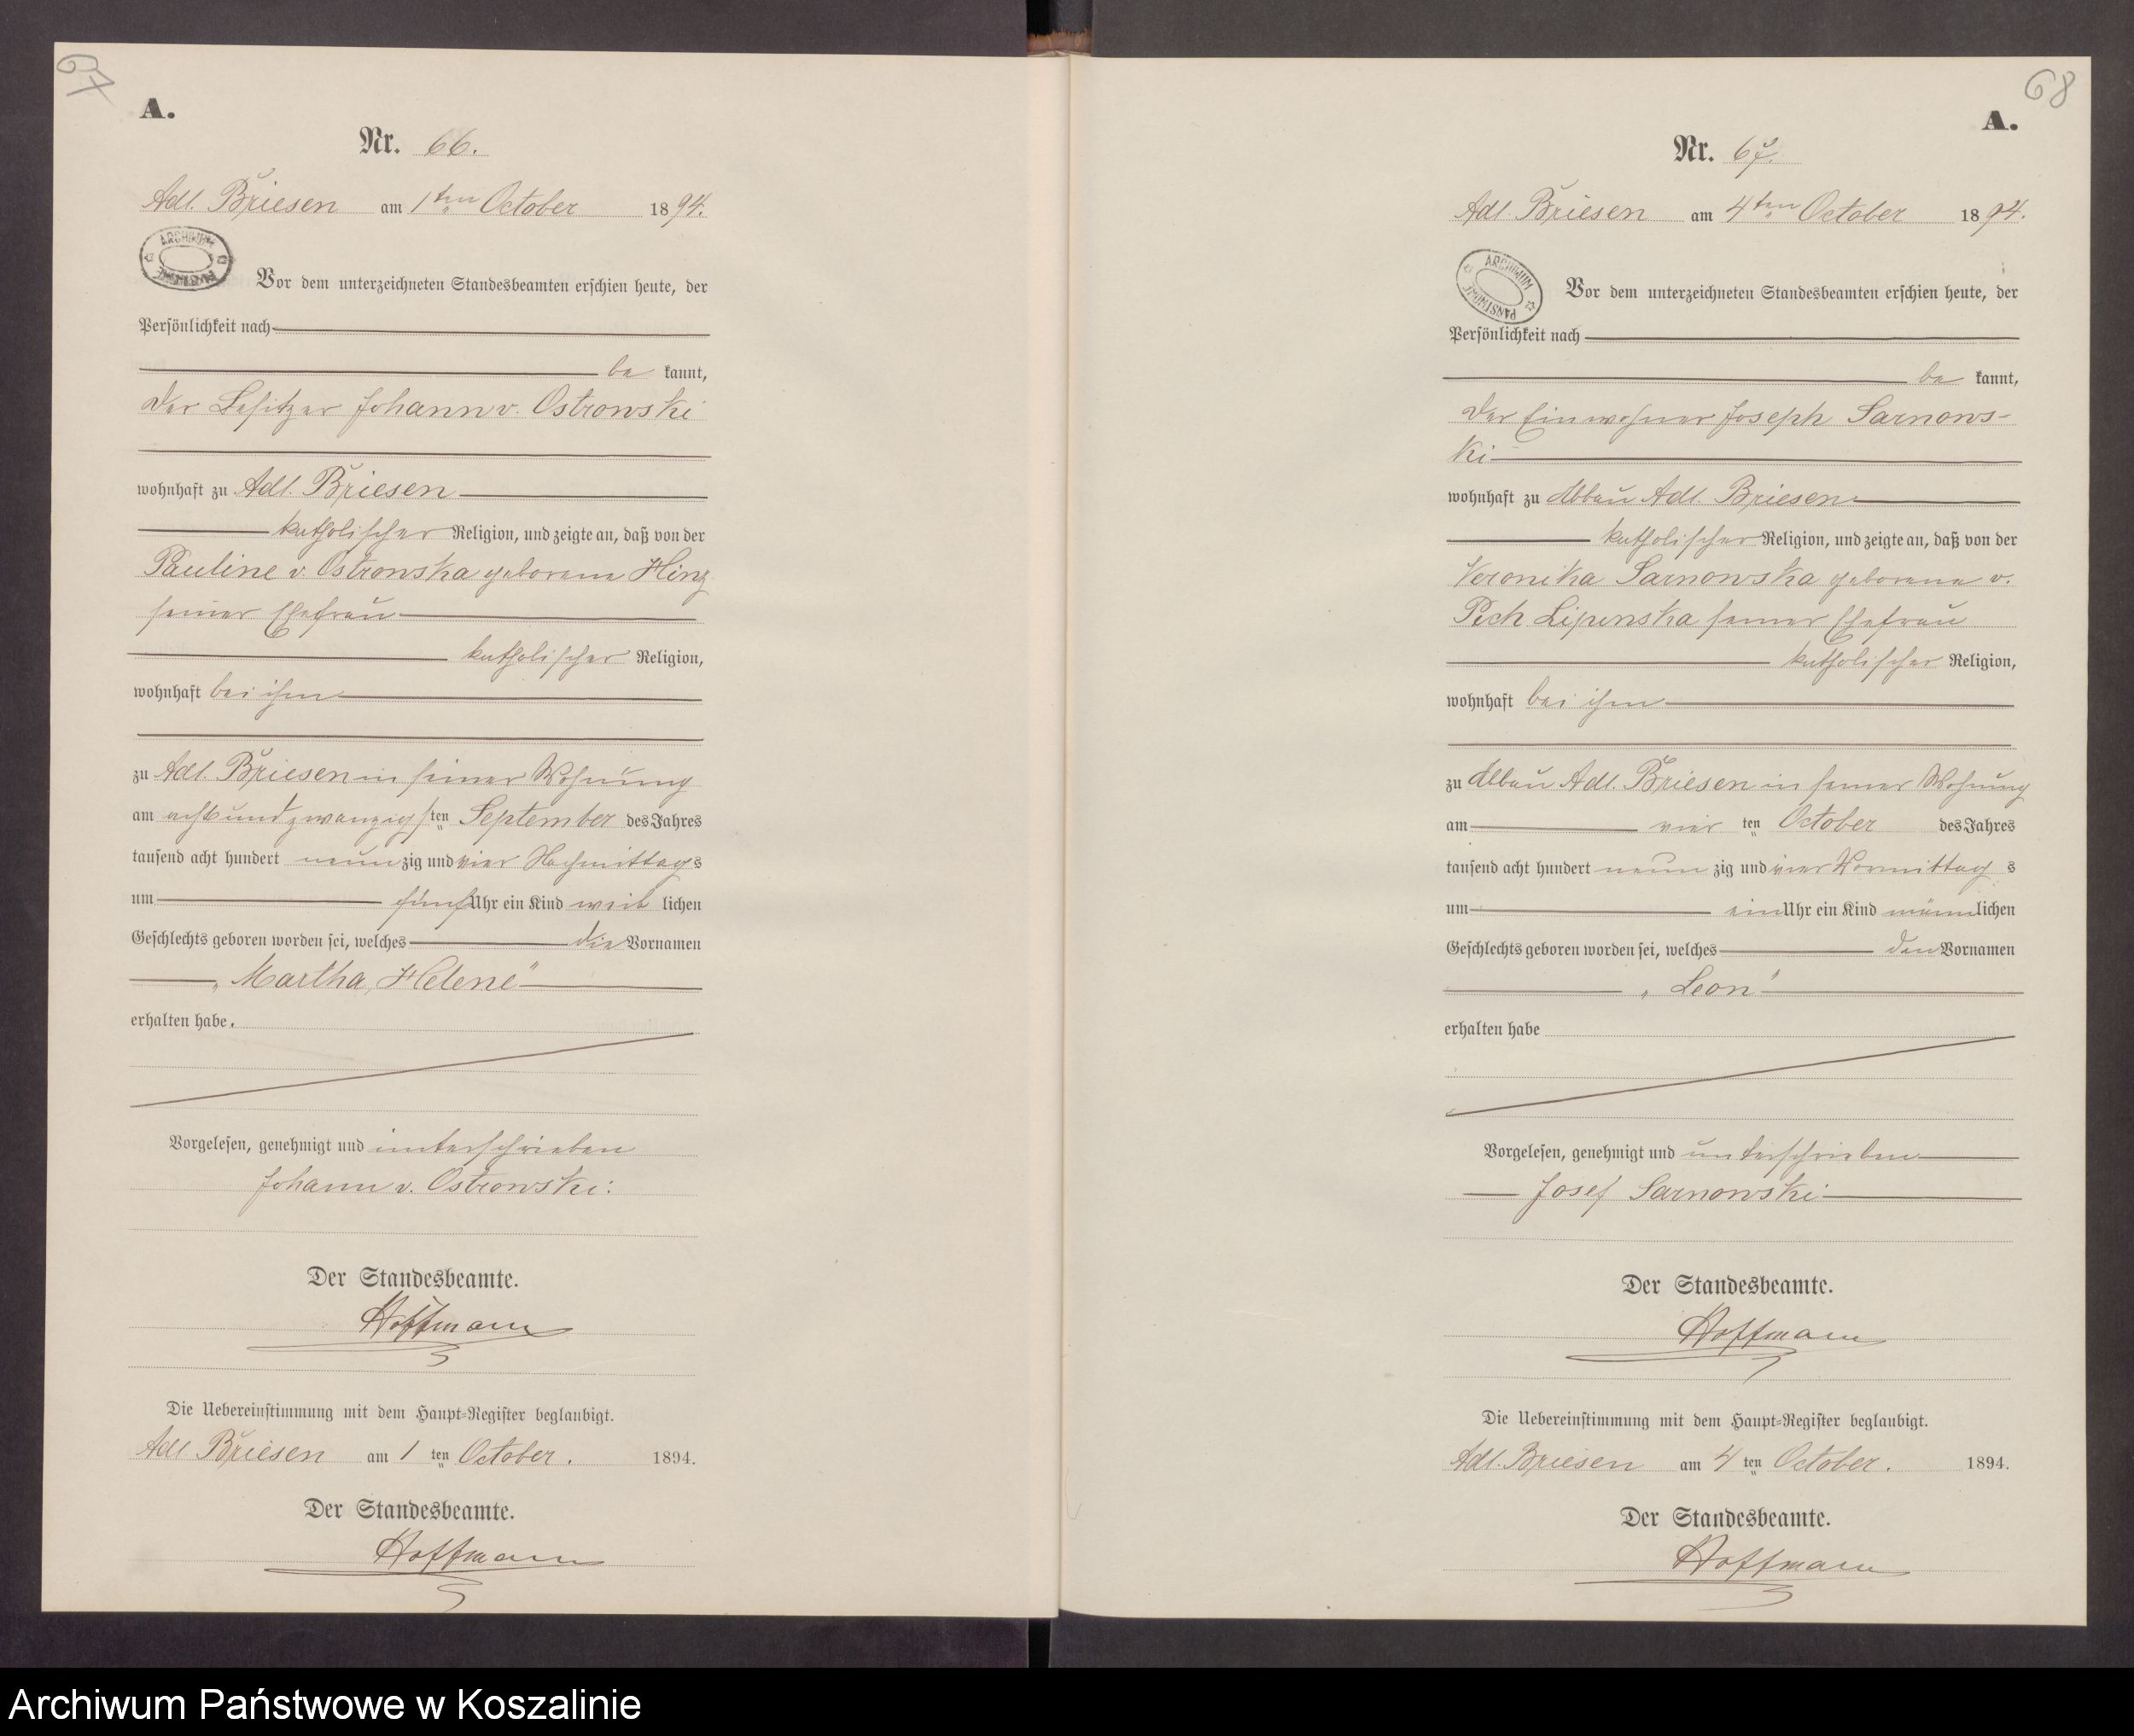 67
A.
Nr. 66.
Adl. Briesen am 1ten October 1894.
ARCHIWUM PAŃSTWOWE
Vor dem unterzeichneten Standesbeamten erschien heute, der
Persönlichkeit nach
be kannt,
der Besitzer Johann v. Ostrowski
wohnhaft zu Adl. Briesen
katholischer Religion, und zeigte an, daß von der
Pauline v. Ostrowska geborene Hinz
seiner Ehefrau
katholischer Religion,
wohnhaft bei ihm
zu Adl. Briesen in seiner Wohnung
am achtundzwanzigsten September des Jahres
tausend acht hundert neunzig und vier Nachmittags
um fünf Uhr ein Kind weib lichen
Geschlechts geboren worden sei, welches die Vornamen
„Martha, Helene“
erhalten habe.
Vorgelesen, genehmigt und unterschrieben
Johann v. Ostrowski.
Der Standesbeamte.
Hoffmann
Die Uebereinstimmung mit dem Haupt-Register beglaubigt.
Adl Briesen am 1 ten October. 1894.
Der Standesbeamte.
Hoffmann
68
A.
Nr. 67.
Adl. Briesen am 4ten October 1894.
ARCHIWUM PAŃSTWOWE
Vor dem unterzeichneten Standesbeamten erschien heute, der
Persönlichkeit nach
be kannt,
der Einwohner Joseph Sarnows-
ki
wohnhaft zu Abbau Adl. Briesen
katholischer Religion, und zeigte an, daß von der
Veronika Sarnowska geborene v.
Pich Lipinska seiner Ehefrau
katholischer Religion,
wohnhaft bei ihm
zu Abbau Adl. Briesen in seiner Wohnung
am vier ten October des Jahres
tausend acht hundert neun zig und vier Vormittag s
um ein Uhr ein Kind männlichen
Geschlechts geboren worden sei, welches den Vornamen
„Leon“
erhalten habe
Vorgelesen, genehmigt und unterschrieben
Josef Sarnowski
Der Standesbeamte.
Hoffmann
Die Uebereinstimmung mit dem Haupt-Register beglaubigt.
Adl. Briesen am 4 ten October. 1894.
Der Standesbeamte.
Hoffmann
Archiwum Państwowe w Koszalinie